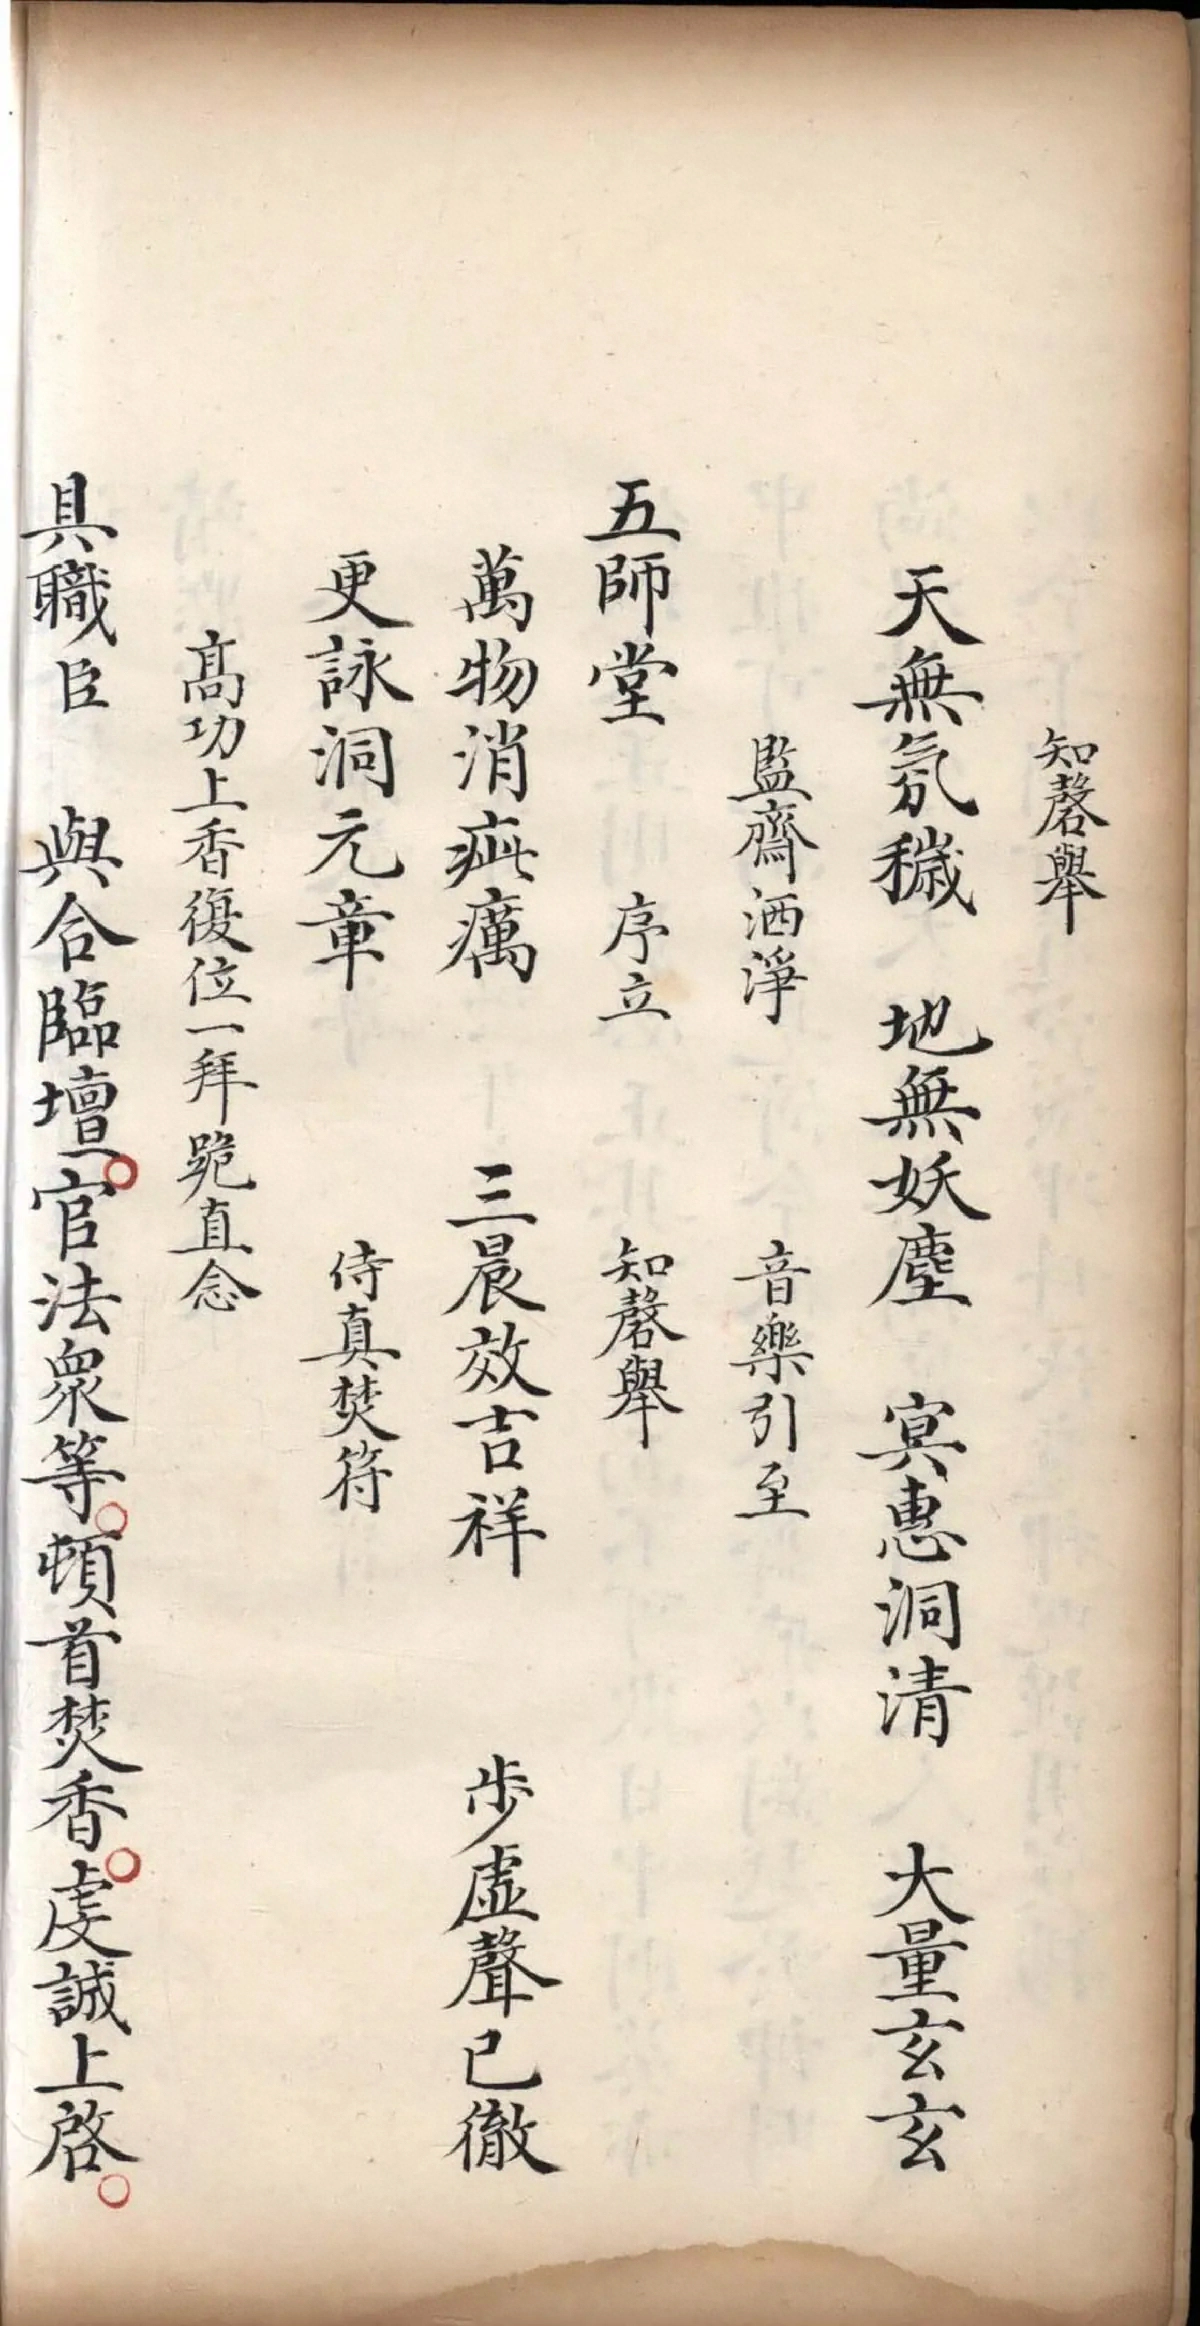 知磬舉
天無氛穢　地無妖塵　冥惠洞清　大量玄玄
監齋洒淨　音樂引至
五師堂　序立　知磬舉
萬物消疵癘　三晨效吉祥　步虛聲已徹
更詠洞元章　侍真焚符
髙功上香復位一拜跪直念
具職臣　與合臨壇。官法衆等。頓首焚香。虔誠上啓。